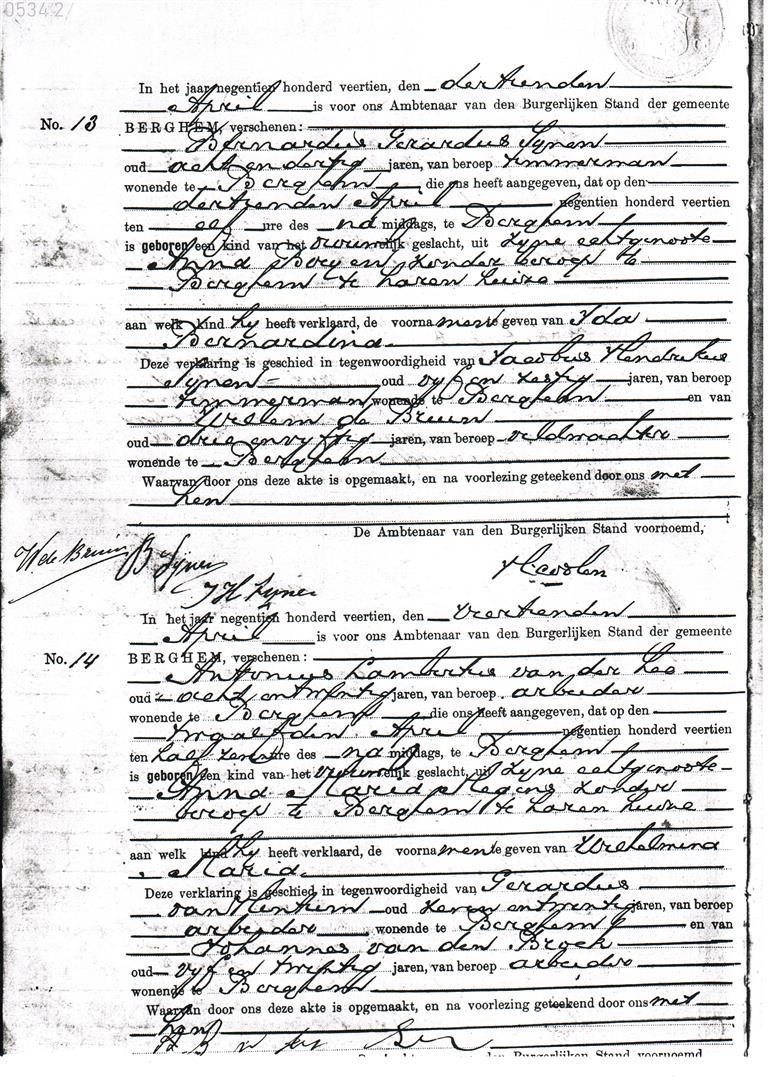 05342/
In het jaar negentien honderd veertien, den dertienden
April is voor ons Ambtenaar van den Burgerlijken Stand der gemeente
No. 13 BERGHEM, verschenen:
Bernardus Gerardus Sijnen
oud acht en dertig jaren, van beroep timmerman
wonende te Berghem, die ons heeft aangegeven, dat op den
dertienden April negentien honderd veertien
ten elf ure des na middags, te Berghem
is geboren een kind van het vrouwelijk geslacht, uit zijne echtgenoote
Anna Boeyen zonder beroep te
Berghem te haren huize
aan welk kind hij heeft verklaard, de voornamen te geven van Ida
Bernardina
Deze verklaring is geschied in tegenwoordigheid van Jacobus Hendrikus
Sijnen oud vijf en zestig jaren, van beroep
timmerman wonende te Berghem en van
Willem de Bruin
oud drie en vijftig jaren, van beroep veldwachter
wonende te Berghem
Waarvan door ons deze akte is opgemaakt, en na voorlezing geteekend door ons met
hen
De Ambtenaar van den Burgerlijken Stand voornoemd,
W de Bruin B Sijnen
J H Sijnen
In het jaar negentien honderd veertien, den veertienden
April is voor ons Ambtenaar van den Burgerlijken Stand der gemeente
No. 14 BERGHEM, verschenen:
Antonius Lambertus van der Lee
oud acht en twintig jaren, van beroep arbeider
wonende te Berghem, die ons heeft aangegeven, dat op den
twaalfden April negentien honderd veertien
ten half zeven ure des na middags, te Berghem
is geboren een kind van het vrouwelijk geslacht, uit zijne echtgenoote
Anna Maria Megens zonder
beroep te Berghem te haren huize
aan welk kind hij heeft verklaard, de voornamen te geven van Wilhelmina
Maria
Deze verklaring is geschied in tegenwoordigheid van Gerardus
van oud zeven en twintig jaren, van beroep
arbeider wonende te Berghem en van
Johannes van den Broek
oud vijf en twintig jaren, van beroep arbeider
wonende te Berghem
Waarvan door ons deze akte is opgemaakt, en na voorlezing geteekend door ons met
hen
den Burgerlijken Stand voornoemd